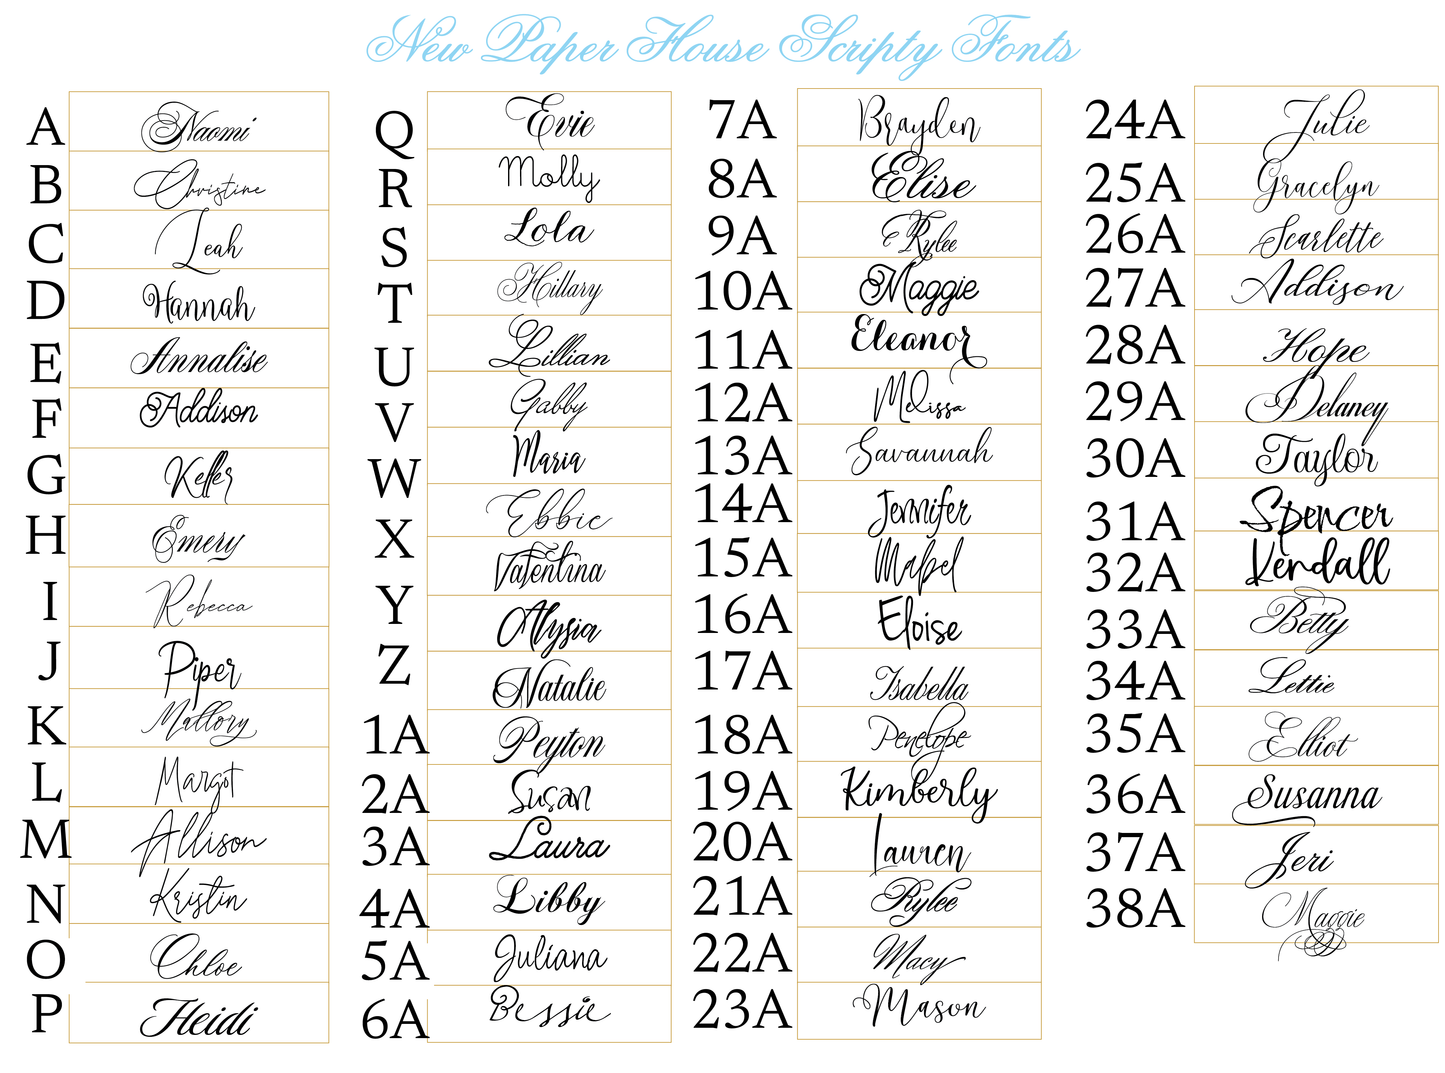 New Paper House Scripty Fonts
A Naomi
B Christine
C Leah
D Hannah
E Annalise
F Addison
G Keller
H Emery
I Rebecca
J Piper
K Mallory
L Margot
M Allison
N Kristin
O Chloe
P Heidi
Q Evie
R Molly
S Lola
T Hillary
U Lillian
V Gabby
W Maria
X Ebbie
Y Valentina
Z Alysia
Natalie
1A Peyton
2A Susan
3A Laura
4A Libby
5A Juliana
6A Bessie
7A Brayden
8A Elise
9A Rylee
10A Maggie
11A Eleanor
12A Melissa
13A Savannah
14A Jennifer
15A Mabel
16A Eloise
17A Isabella
18A Penelope
19A Kimberly
20A Lauren
21A Rylee
22A Macy
23A Mason
24A Julie
25A Gracelyn
26A Scarlette
27A Addison
28A Hope
29A Delaney
30A Taylor
31A Spencer
32A Kendall
33A Betty
34A Lettie
35A Elliot
36A Susanna
37A Jeri
38A Maggie